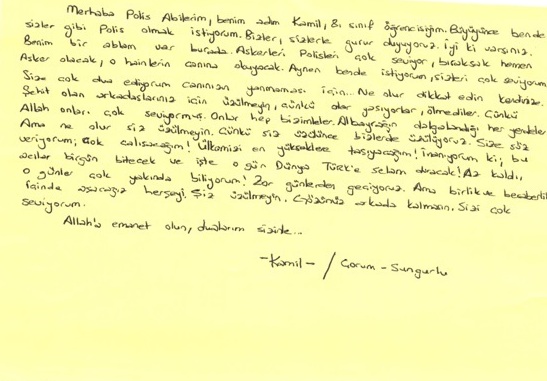 Merhaba Polis Abilerim, benim adım Kamil, 8. sınıf öğrencisiyim. Büyüyünce bende
sizler gibi Polis olmak istiyorum. Bizler, sizlerle gurur duyuyoruz. İyi ki varsınız.
Benim bir ablam var burada. Askerleri Polisleri çok seviyor, bıraksak hemen
Asker olacak, o hainlerin canına okuyacak. Aynen bende istiyorum, sizleri çok seviyorum
Size çok dua ediyorum canınızın yanmaması için... Ne olur dikkat edin kendinize.
Şehit olan arkadaşlarınız için üzülmeyin, çünkü onlar yaşıyorlar, ölmediler. Çünkü
Allah onları çok seviyormuş. Onlar hep bizimleler. Albayrağın dalgalandığı her yerdeler
Ama ne olur siz üzülmeyin. Çünkü siz üzülünce bizlerde üzülüyoruz. Size söz
veriyorum; çok çalışacağım! Ülkemizi en yükseklere taşıyacağım! İnanıyorum ki; bu
acılar birgün bitecek ve işte o gün Dünya Türk'e selam duracak! Az kaldı,
o günler çok yakında biliyorum! Zor günlerden geçiyoruz. Ama birlik ve beraberlik
içinde aşacağız herşeyi! Siz üzülmeyin. Gözünüz arkada kalmasın. Sizi çok
seviyorum.
Allah'a emanet olun, dualarım sizinle...
-Kamil- / Çorum - Sungurlu